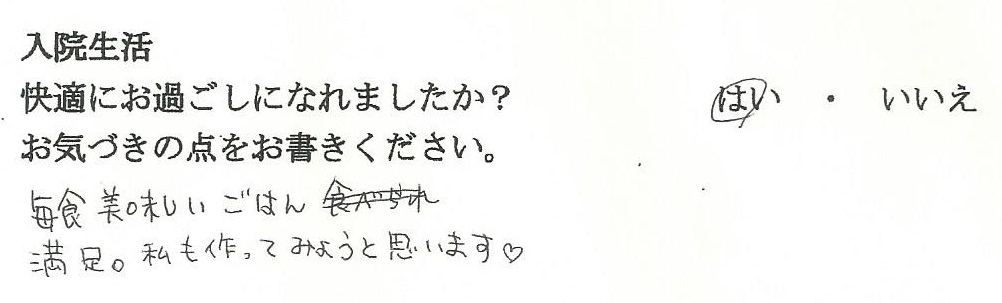 入院生活
快適にお過ごしになれましたか? はい ・ いいえ
お気づきの点をお書きください。
毎食美味しいごはん食べられ
満足。私も作ってみようと思います♡